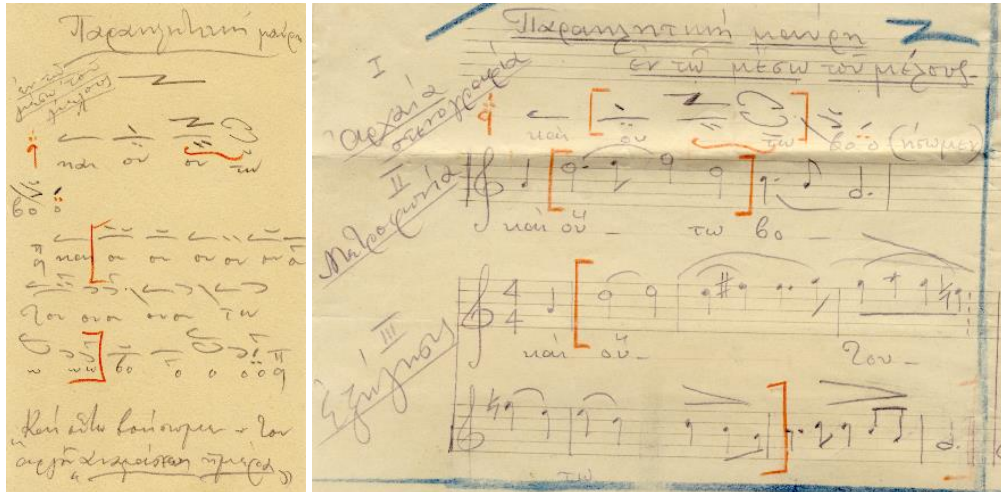 Παρακλητική μαύρη
ἐν τῷ
μέσῳ τοῦ
μέλους
και ου ου τω
βο ο
και ου ου ου ου ου
του ουου ουου τω
ω ωω βο ο ο ο ο
Καὶ οὕτω βοήσωμεν - του
Παρακλητική μαύρη
ἐν τῷ μέσῳ τοῦ μέλους
I
ἀρχαία
στενογραφία
και ου τω βο ο (ήσωμεν)
II
Μετροφωνία
και οὕ - τω βο -
III
ἐξήγησις
4
4
και οὕ - του -
τω